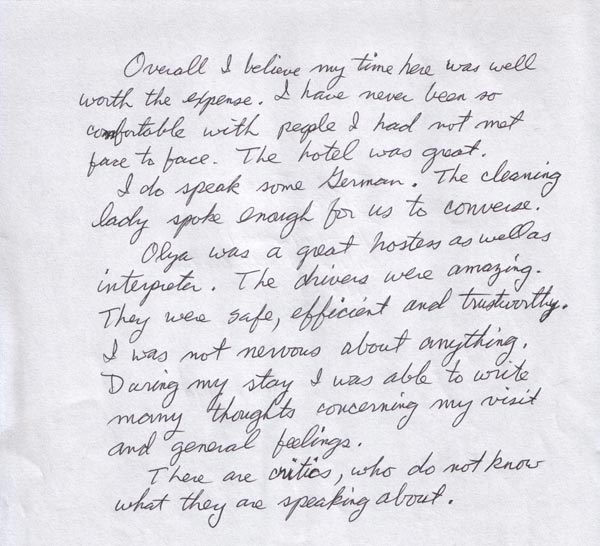 Overall I believe my time here was well
worth the expense. I have never been so
comfortable with people I had not met
face to face. The hotel was great.
I do speak some German. The cleaning
lady spoke enough for us to converse.
Olya was a great hostess as well as
interpreter. The drivers were amazing.
They were safe, efficient and trustworthy.
I was not nervous about anything.
During my stay I was able to write
many thoughts concerning my visit
and general feelings.
There are critics, who do not know
what they are speaking about.